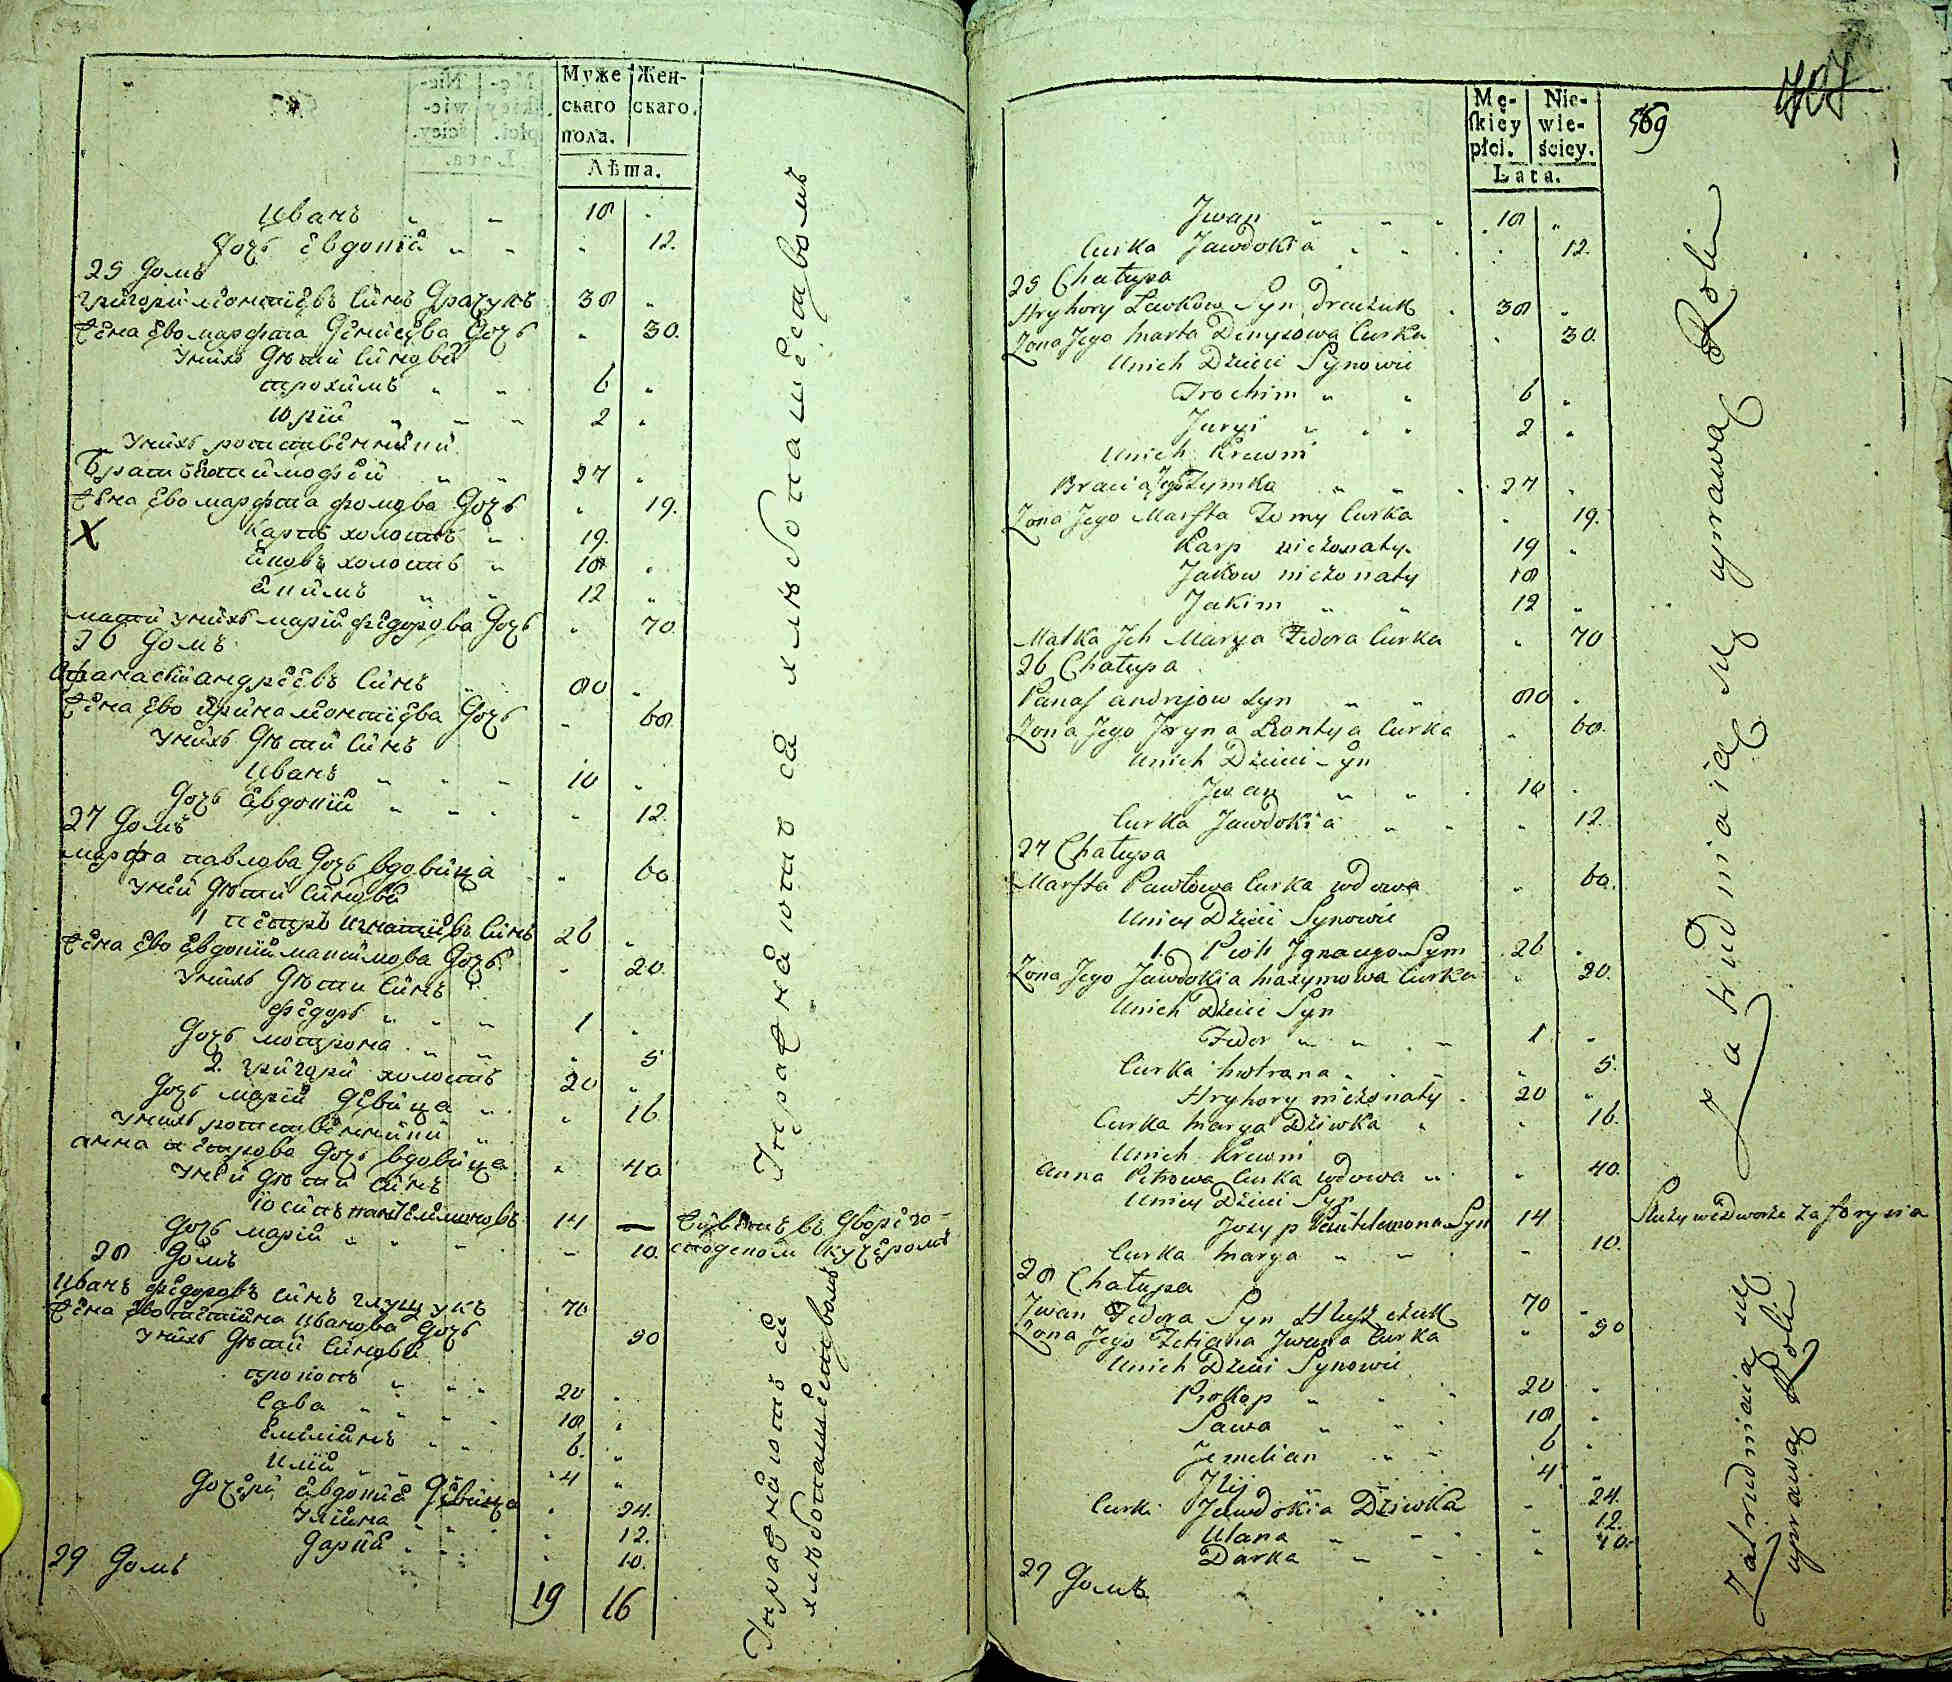 Муже Жен-
скаго скаго.
пола.
Лѣта.
Иванъ 18
Дочь Евдокія 12.
25 Домъ
Григорій Леонтіевъ Синъ Драчукъ 38
Жена Ево Марфта Денисова Дочь 30.
У нихъ Дѣти Синови
Трохимъ 6
Юрій 2
У нихъ
Тимофей 27
Жена Ево Марфта Фомова Дочь 19.
X Карпъ холостъ 19.
Яковъ холостъ 18
Якимъ 12
Мати у нихъ Марія Федорова Дочь 70
26 Домъ
Афанасій Андреевъ Синъ 80
Жена Ево Ирина Леонтіева Дочь 68.
У нихъ Дѣти Синъ
Иванъ 10
Дочь Евдокія 12.
27 Домъ
Марфа Павлова Дочь вдовица 60
У ней Дѣти Синови
1 Петръ Игнатіевъ Синъ 26
Жена Ево Евдокія Макимова Дочь 20.
У нихъ Дѣти Синъ
Федоръ 1
Дочь Мотрона 5
2. Григорій холостъ 20
Дочь Марія Девица 16.
У нихъ
Анна Петрова Дочь вдовица 40
У ней Дѣти Синъ
Іосипъ Пантелимоновъ 14 — Живетъ въ Дворе го-
Дочь Марія 10. сподскомъ кучеромъ
28 Домъ
Иванъ Федоровъ Синъ Глущукъ 70
Жена Ево Тетіяна Иванова Дочь 50
У нихъ Дѣти Синови
Прокопъ 20
Сава 18
Емеліянъ 6.
Илія 4
Дочери Евдокія Девица 24.
Уліяна 12.
Дарія 10.
29 Домъ
19 16
Упражняются хлебопашеством
Упражняются
хлебопашеством
Mę- Nie-
skiey wie-
płci. ściey.
Lata.
569
707
Jwan 18
Curka Jawdokia 12.
25 Chatupa
Hryhory Lewkow Syn Draczuk 38
Zona Jego Marta Denysowa Curka 30.
Unich Dzieci Synowie
Trochim 6
Juryi 2
Unich Krewni
Bracia Jego Tymka 27
Zona Jego Marfta Fomy Curka 19.
Karp nieżonaty 19
Jakow nieżonaty 18
Jakim 12
Matka Jch Marya Fedora Curka 70
26 Chatupa
Panas Andrijow Syn 80
Zona Jego Jryna Leontya Curka 68.
Unich Dzieci Syn
Jwan 10
Curka Jawdokia 12.
27 Chatupa
Marfta Pawłowa Curka wdowa 60.
Uniey Dzieci Synowie
1. Piotr Jgnacego Syn 26
Zona Jego Jawdokia Maxymowa Curka 20.
Unich Dzieci Syn
Fedor 1
Curka Motrona 5.
Hryhory nieżonaty 20
Curka Marya Dziwka 16.
Unich Krewni
Anna Petrowa Curka wdowa 40.
Uniey Dzieci Syn
Jozyp Pantelemona Syn 14 Służy we dworze za forysia
Curka Marya 10.
28 Chatupa
Jwan Fedora Syn Hłuszczuk 70
Zona Jego Tetiana Jwana Curka 50
Unich Dzieci Synowie
Prokop 20
Sawa 18
Jemelian 6
Jlij 4
Curki Jawdokia Dziwka 24.
Ulana 12.
Darka 10.
29 Домъ
Zatrudniaią się uprawą Roli
Zatrudniaią się
uprawą Roli